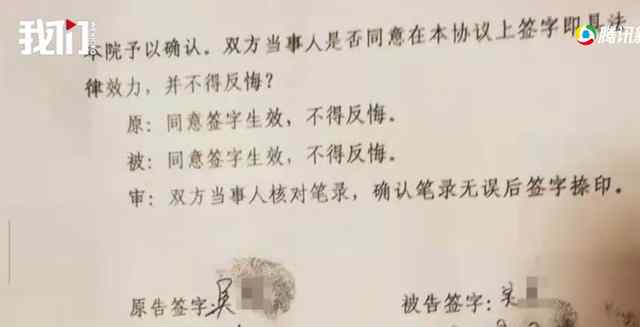 我们
腾讯
本院予以确认。双方当事人是否同意在本协议上签字即具法
律效力,并不得反悔?
原:同意签字生效,不得反悔。
被:同意签字生效,不得反悔。
审:双方当事人核对笔录,确认笔录无误后签字捺印。
原告签字:吴
被告签字: